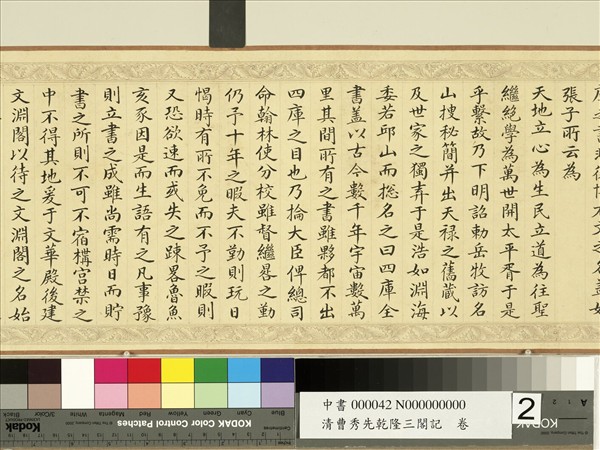 張子所云為
天地立心為生民立道為往聖
繼絕學為萬世開太平胥于是
乎繫故乃下明詔勅岳牧訪名
山搜秘簡并出天禄之舊蔵以
及世家之獨弆于是浩如淵海
委若邱山而捴名之曰四庫全
書盖以古今數千年宇宙數萬
里其間所有之書雖夥都不出
四庫之目也乃掄大臣俾總司
命翰林使分校雖督繼晷之勤
仍予十年之暇夫不勤則玩日
愒時有所不免而不予之暇則
又恐欲速而或失之踈畧魯魚
亥豕因是而生語有之凡事豫
則立書之成雖尚需時日而貯
書之所則不可不宿構宫禁之
中不得其地爰于文華殿後建
文淵閣以待之文淵閣之名始
Blue Cyan Green Yellow Red Magenta White 3/Color Black
Kodak KODAK Color Control Patches
中書 000042 N000000000
清曹秀先乾隆三閣記 卷
2
KODAK
A 1 2